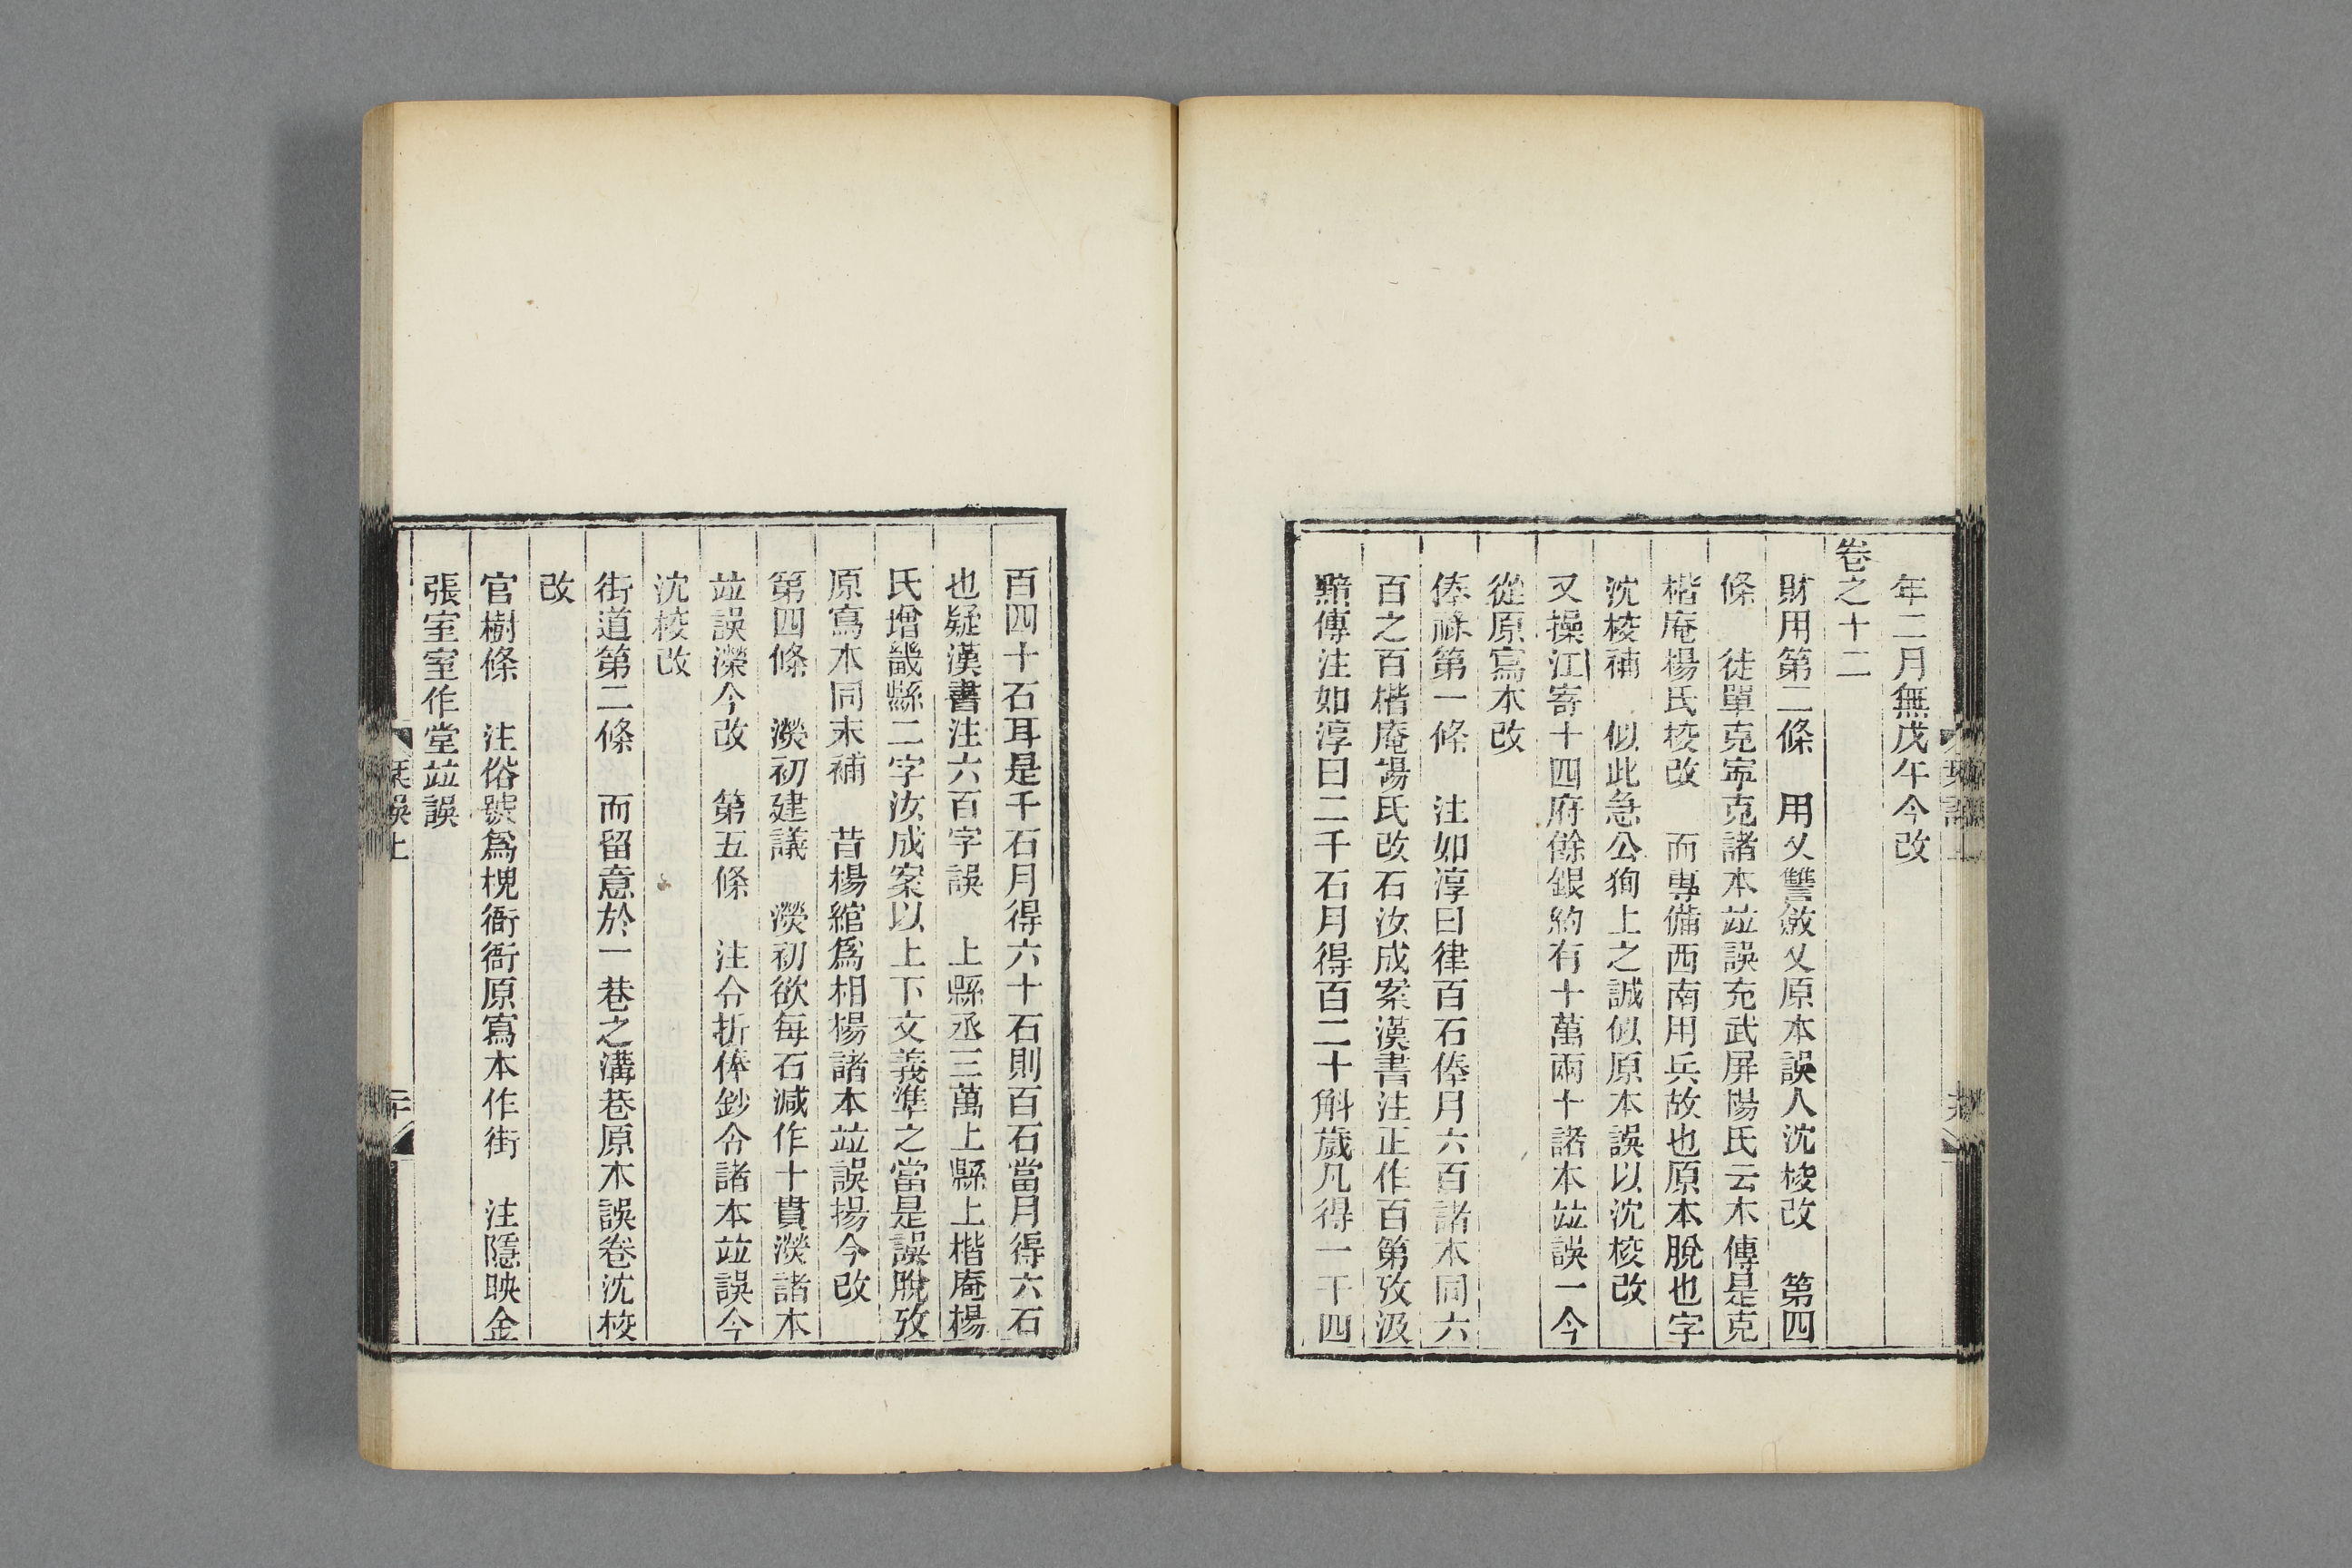 年二月無戊午今改
卷之十二
財用第二條　用乂讐斂乂原本誤人沈校改　第四
條　徒單克寧克諸本竝誤充武屏楊氏云本傳是克
楷庵楊氏校改　而專備西南用兵故也原本脫也字
沈校補　似此急公狥上之誠似原本誤以沈校改
又操江寄十四府餘銀約有十萬兩十諸本竝誤一今
從原寫本改
俸祿第一條　注如淳曰律百石俸月六百諸本同六
百之百楷庵楊氏改石汝成案漢書注正作百第攷汲
黯傳注如淳曰二千石月得百二十斛歲凡得一千四
百四十石耳是千石月得六十石則百石當月得六石
也疑漢書注六百字誤　上縣丞三萬上縣上楷庵楊
氏增畿縣二字汝成案以上下文義準之當是誤脫攷
原寫本同未補　昔楊綰爲相楊諸本竝誤揚今改
第四條　濙初建議　濙初欲每石減作十貫濙諸本
竝誤濴今改　第五條　注令折俸鈔令諸本竝誤今
沈校改
街道第二條　而留意於一巷之溝巷原本誤卷沈校
改
官樹條　注俗號爲槐衙衙原寫本作街　注隱映金
張室室作堂竝誤
栞誤上